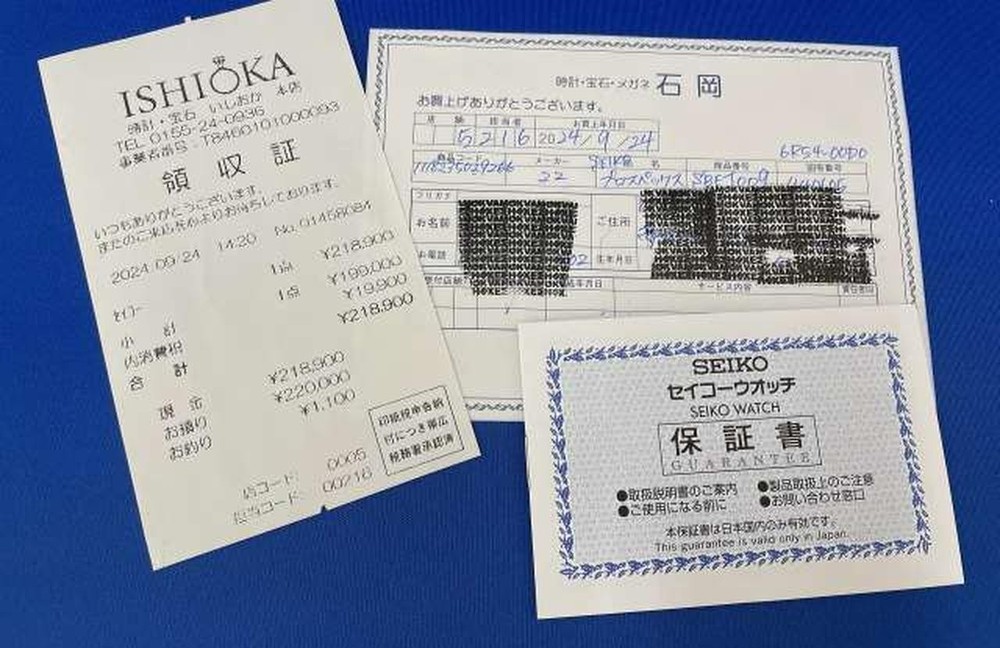 ISHIOKA
時計・宝石 いしおか 本店
TEL 0155-24-0936
事業者番号:T8460101000093
領収証
いつもありがとうございます。
またのご来店を心よりお待ちしております。
2024/09/24 14:20 No.01458084
セイコー 1点 ¥218,900
小計 1点 ¥199,000
内消費税 ¥19,900
合計 ¥218,900
現金 ¥218,900
お預り ¥220,000
お釣り ¥1,100
印紙税申告納
付につき帯広
税務署承認済
店コード: 0005
担当コード: 00216
時計・宝石・メガネ 石岡
お買上げありがとうございます。
店 舗 担当者 お買上年月日
5216 2024/9/24
6R54-00D0
メーカー 名 商品番号
22 SEIKO プロスペックス
フリガナ
お名前 ご住所
お電話 02 生年月日
サービス内容
SEIKO
セイコーウオッチ
SEIKO WATCH
保証書
GUARANTEE
●取扱説明書のご案内 ●製品取扱上のご注意
●ご使用になる前に ●お問い合わせ窓口
本保証書は日本国内のみ有効です。
This guarantee is valid only in Japan.